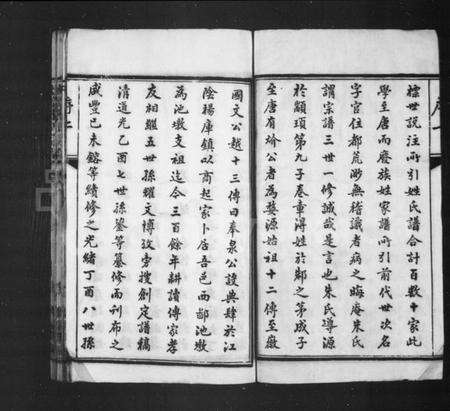 標世說注所引姓氏譜合計百數十家此
學至唐而廢族姓家譜所引前代世次名
字官位都荒渺無稽識者病之晦庵朱氏
謂宗譜三世一修誠哉是言也朱氏導源
於顓頊第九子秦章淂姓於邾之第成子
至唐有埨公者為婺源始祖十二傳至徽
國文公越十三傳曰奉泉公設典肆於江
陰楊庫鎮以商起家卜居吾邑西鄙池墩
為池墩支祖迄今三百餘年耕讀傳家孝
友相繼五世孫耀文博攷旁搜創定譜稿
清道光乙酉七世孫鋆等纂修而刊布之
咸豐己未鎔等續修之光緒丁酉八世孫